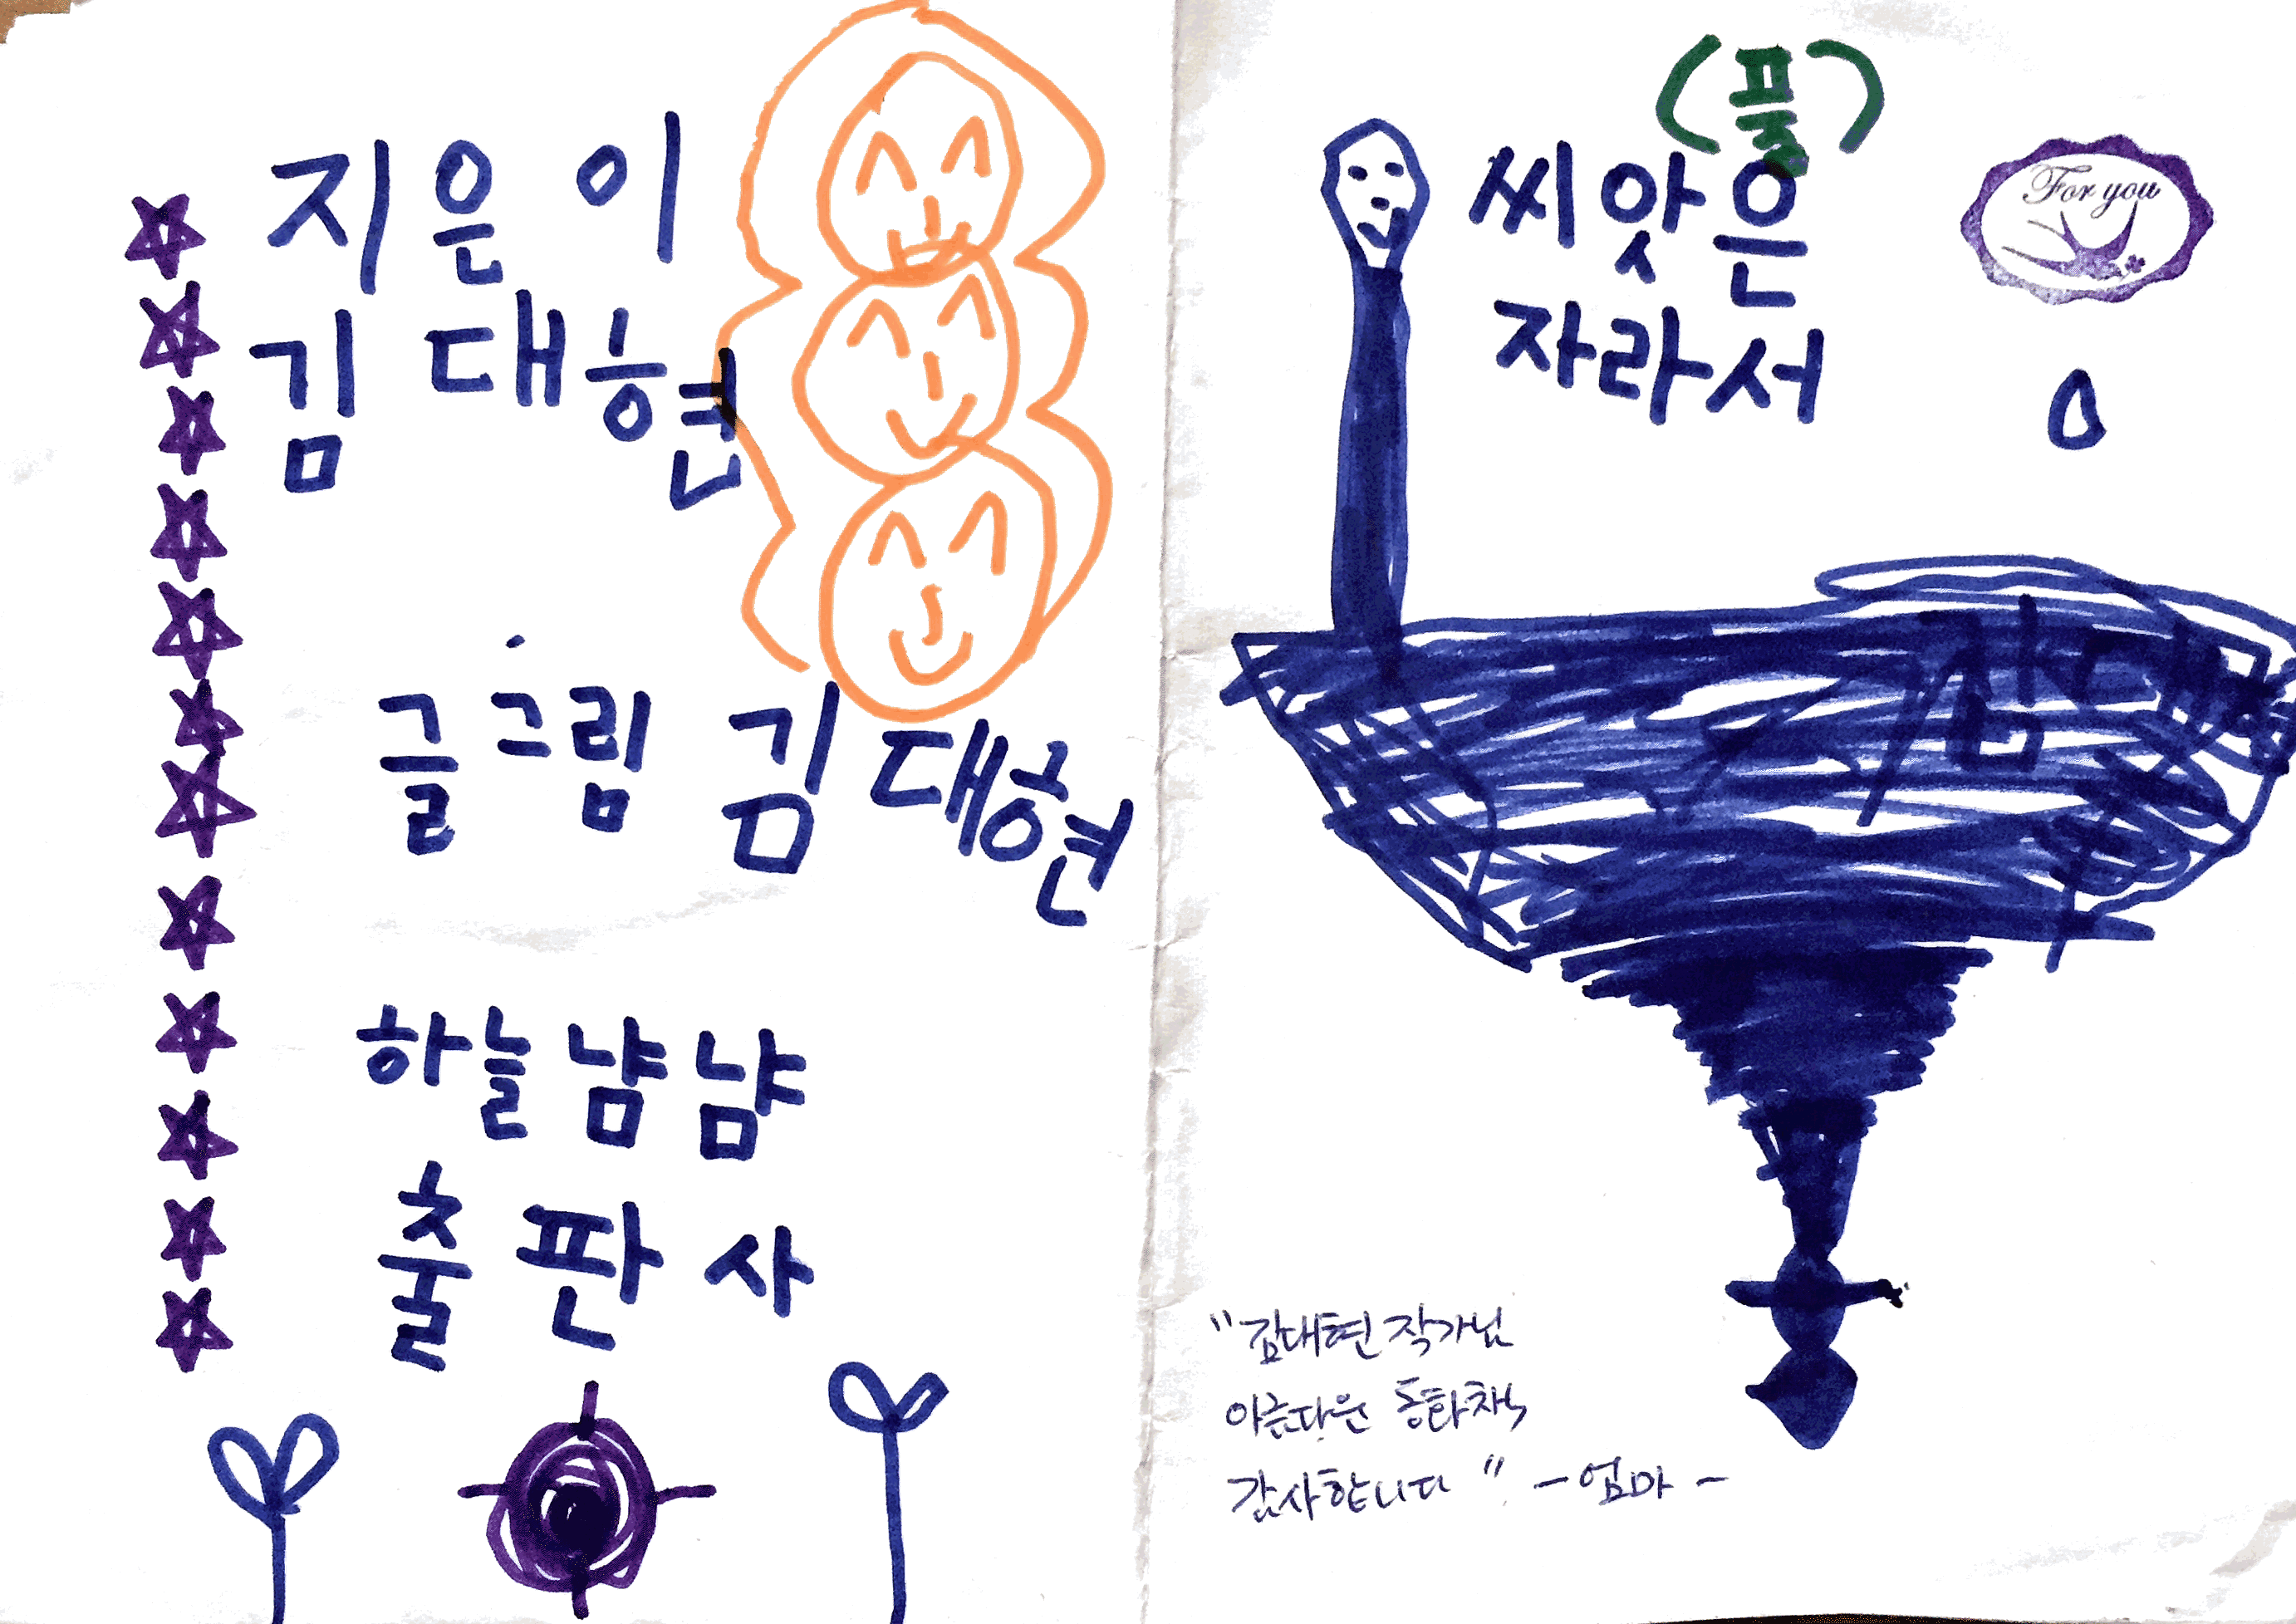 지은이
김대현
글그림 김대현
하늘냠냠
출판사
(풀)
씨앗은
자라서
For you
"김대현 작가님
아름다운 동화책
감사합니다" -엄마-